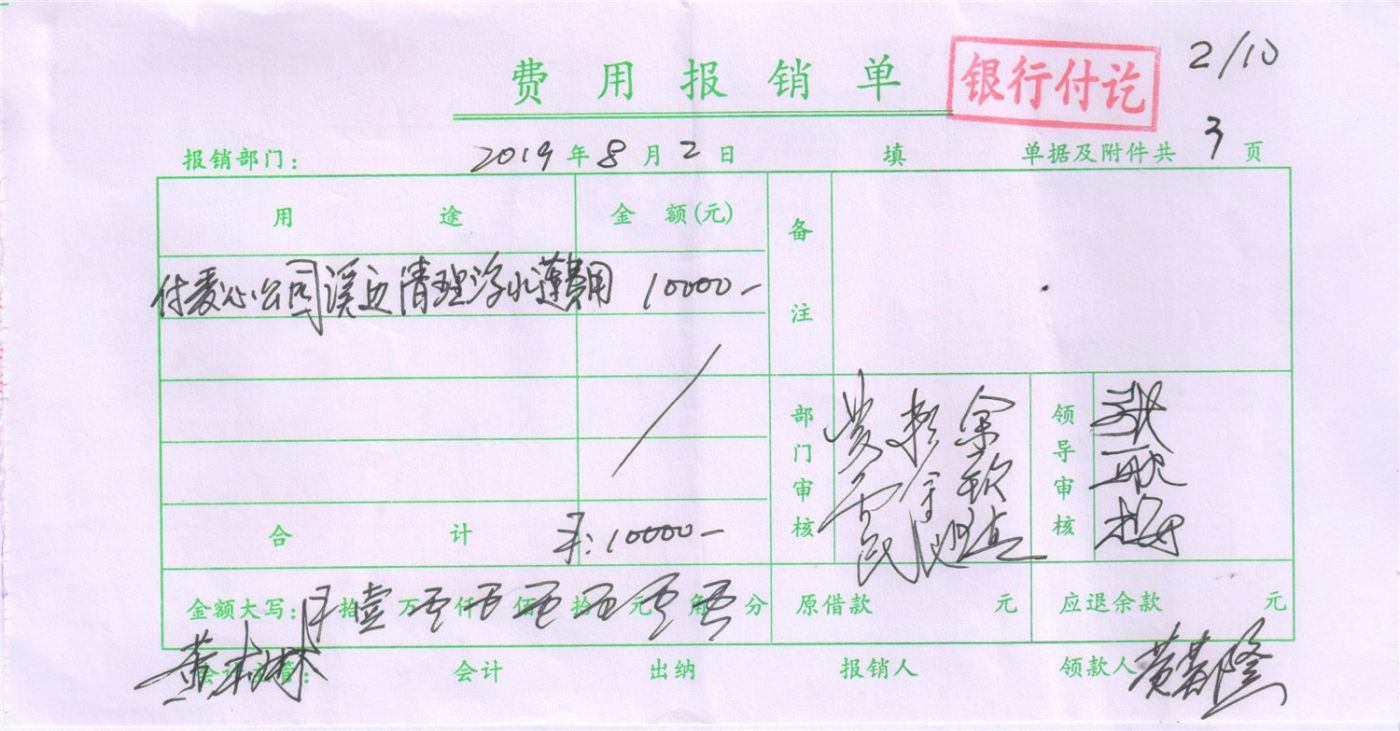 2/10
费用报销单 银行付讫
报销部门： 2019年8月2日 填 单据及附件共3页
用途 金额(元) 备注
付爱心公司溪边清理浮水莲费用 10000-
部门审核 领导审核
合计 ￥:10000-
金额大写： 拾壹万零仟零佰零拾零元零角零分 原借款 元 应退余款 元
会计主管： 会计 出纳 报销人 领款人